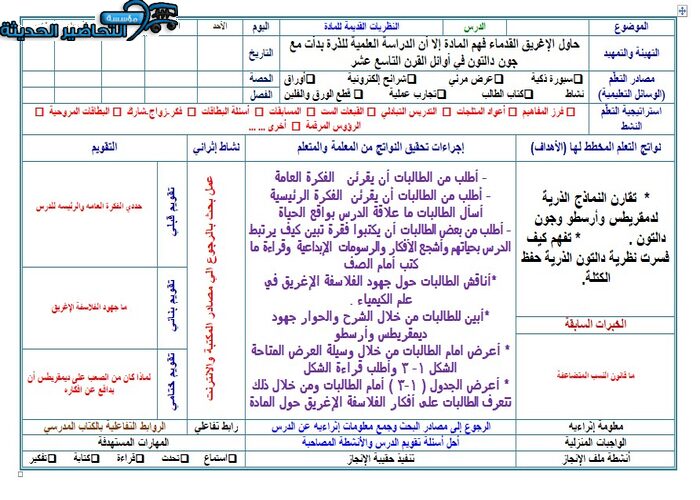 مؤسسة
التحاضير الحديثة
الموضوع
الدرس
النظريات القديمة للمادة
اليوم
الأحد
التهيئة والتمهيد
حاول الإغريق القدماء فهم المادة إلا أن الدراسة العلمية للذرة بدأت مع
جون دالتون في أوائل القرن التاسع عشر
التاريخ
مصادر التعلّم
(الوسائل التعليمية)
سبورة ذكية
عرض مرئي
شرائح إلكترونية
أوراق
نشاط
كتاب الطالب
تجارب عملية
قطع الورق والفلين
الحصة
الفصل
استراتيجية التعلّم
النشط
فرز المفاهيم
أعواد المثلجات
التدريس التبادلي
القبعات الست
المسابقات
أسئلة البطاقات
فكر-زواج-شارك
البطاقات المروحية
الرؤوس المرقمة
أخرى ... ...
نواتج التعلم المخطط لها (الأهداف)
إجراءات تحقيق النواتج من المعلمة والمتعلم
نشاط إثرائي
التقويم
* تقارن النماذج الذرية
لدمقريطس وأرسطو وجون
دالتون . * تفهم كيف
فسرت نظرية دالتون الذرية حفظ
الكتلة.
الخبرات السابقة
ما قانون النسب المتضاعفة
- أطلب من الطالبات أن يقرئن الفكرة العامة
- أطلب من الطالبات أن يقرئن الفكرة الرئيسية
أسأل الطالبات ما علاقة الدرس بواقع الحياة
- أطلب من بعض الطالبات أن يكتبوا فقرة تبين كيف يرتبط
الدرس بحياتهم وأشجع الأفكار والرسومات الإبداعية وقراءة ما
كتب أمام الصف
*أناقش الطالبات حول جهود الفلاسفة الإغريق في
علم الكيمياء .
*أبين للطالبات من خلال الشرح والحوار جهود
ديمقريطس وأرسطو
* أعرض امام الطالبات من خلال وسيلة العرض المتاحة
الشكل ١-٣ وأطلب قراءة الشكل
* أعرض الجدول ( ١-٣ ) أمام الطالبات ومن خلال ذلك
تتعرف الطالبات على أفكار الفلاسفة الإغريق حول المادة
عمل بحث بالرجوع الى مصادر المكتبة والانترنت
تقويم قبلي
حددي الفكرة العامه والرئيسه للدرس
تقويم بنائي
ما جهود الفلاسفة الإغريق
تقويم ختامي
لماذا كان من الصعب على ديمقريطس أن
يدافع عن افكاره
معلومة إثرائيه
الرجوع إلى مصادر البحث وجمع معلومات إثرائيه عن الدرس
رابط تفاعلي
الروابط التفاعلية بالكتاب المدرسي
الواجبات المنزلية
أحل أسئلة تقويم الدرس والأنشطة المصاحبة
المهارات المستهدفة
أنشطة ملف الإنجاز
تنفيذ حقيبة الإنجاز
استماع
تحدث
قراءة
كتابة
تفكير